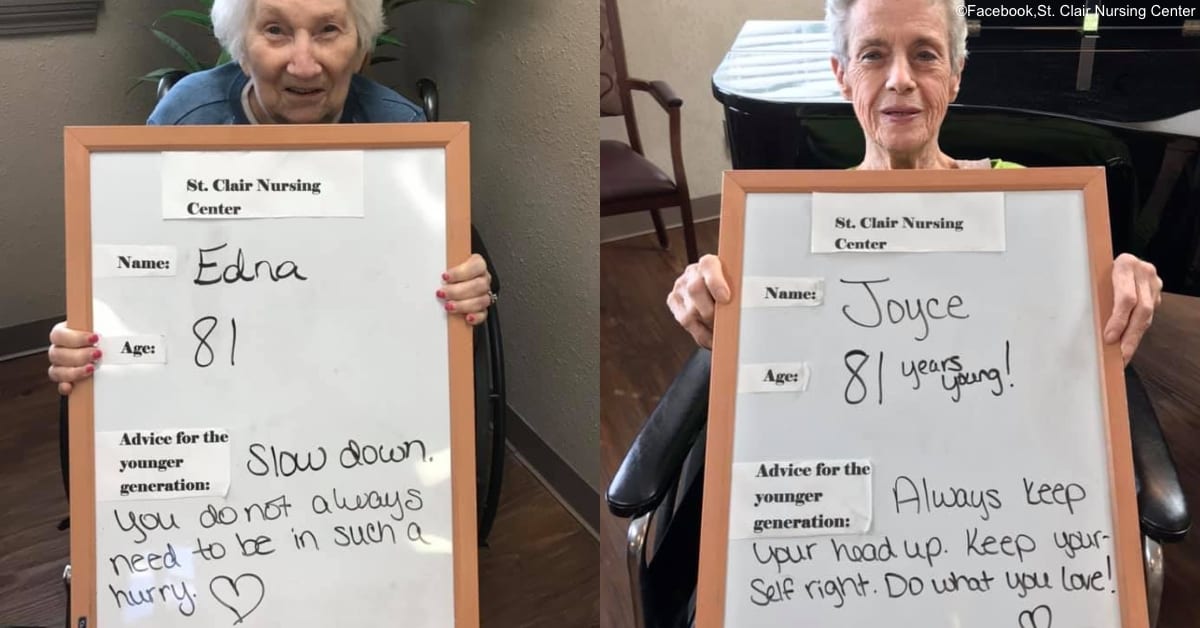 ©Facebook,St. Clair Nursing Center
St. Clair Nursing
Center
Name: Edna
Age: 81
Advice for the
younger
generation: Slow down.
you do not always
need to be in such a
hurry. ♡
St. Clair Nursing
Center
Name: Joyce
Age: 81 years young!
Advice for the
younger
generation: Always keep
your head up. Keep your-
self right. Do what you love!
♡